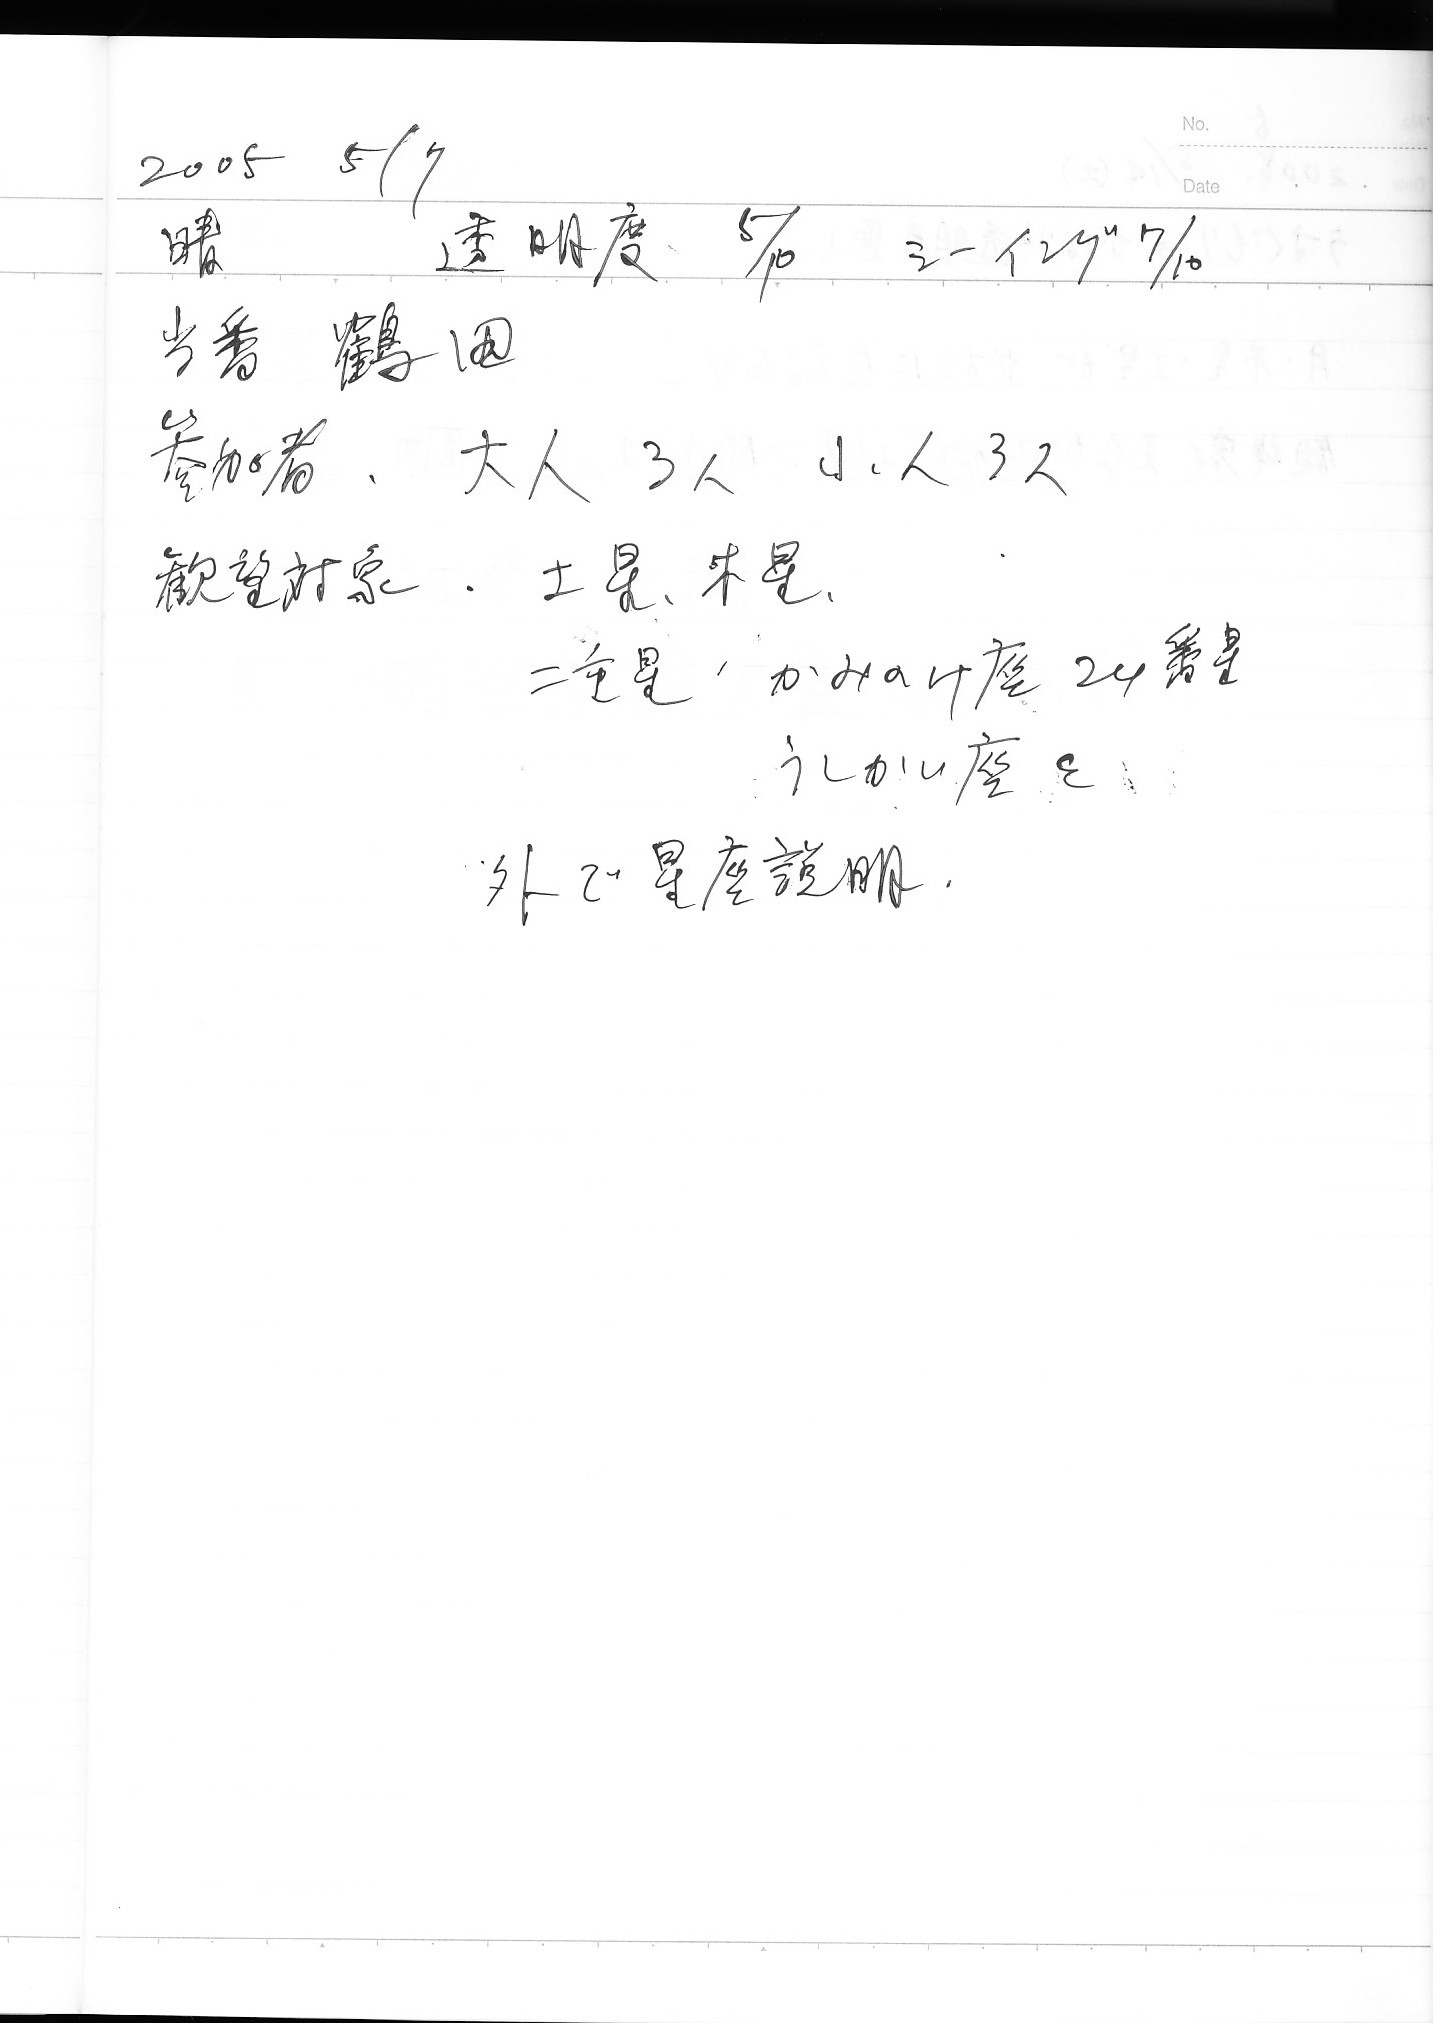 No.
Date
2005 5/7
晴 透明度 5/10 シーイング 7/10
当番 鶴田
参加者、 大人 3人 小人 3人
観望対象. 土星、木星、
二重星, かみのけ座 24番星
うしかい座 ε
外で星座説明.